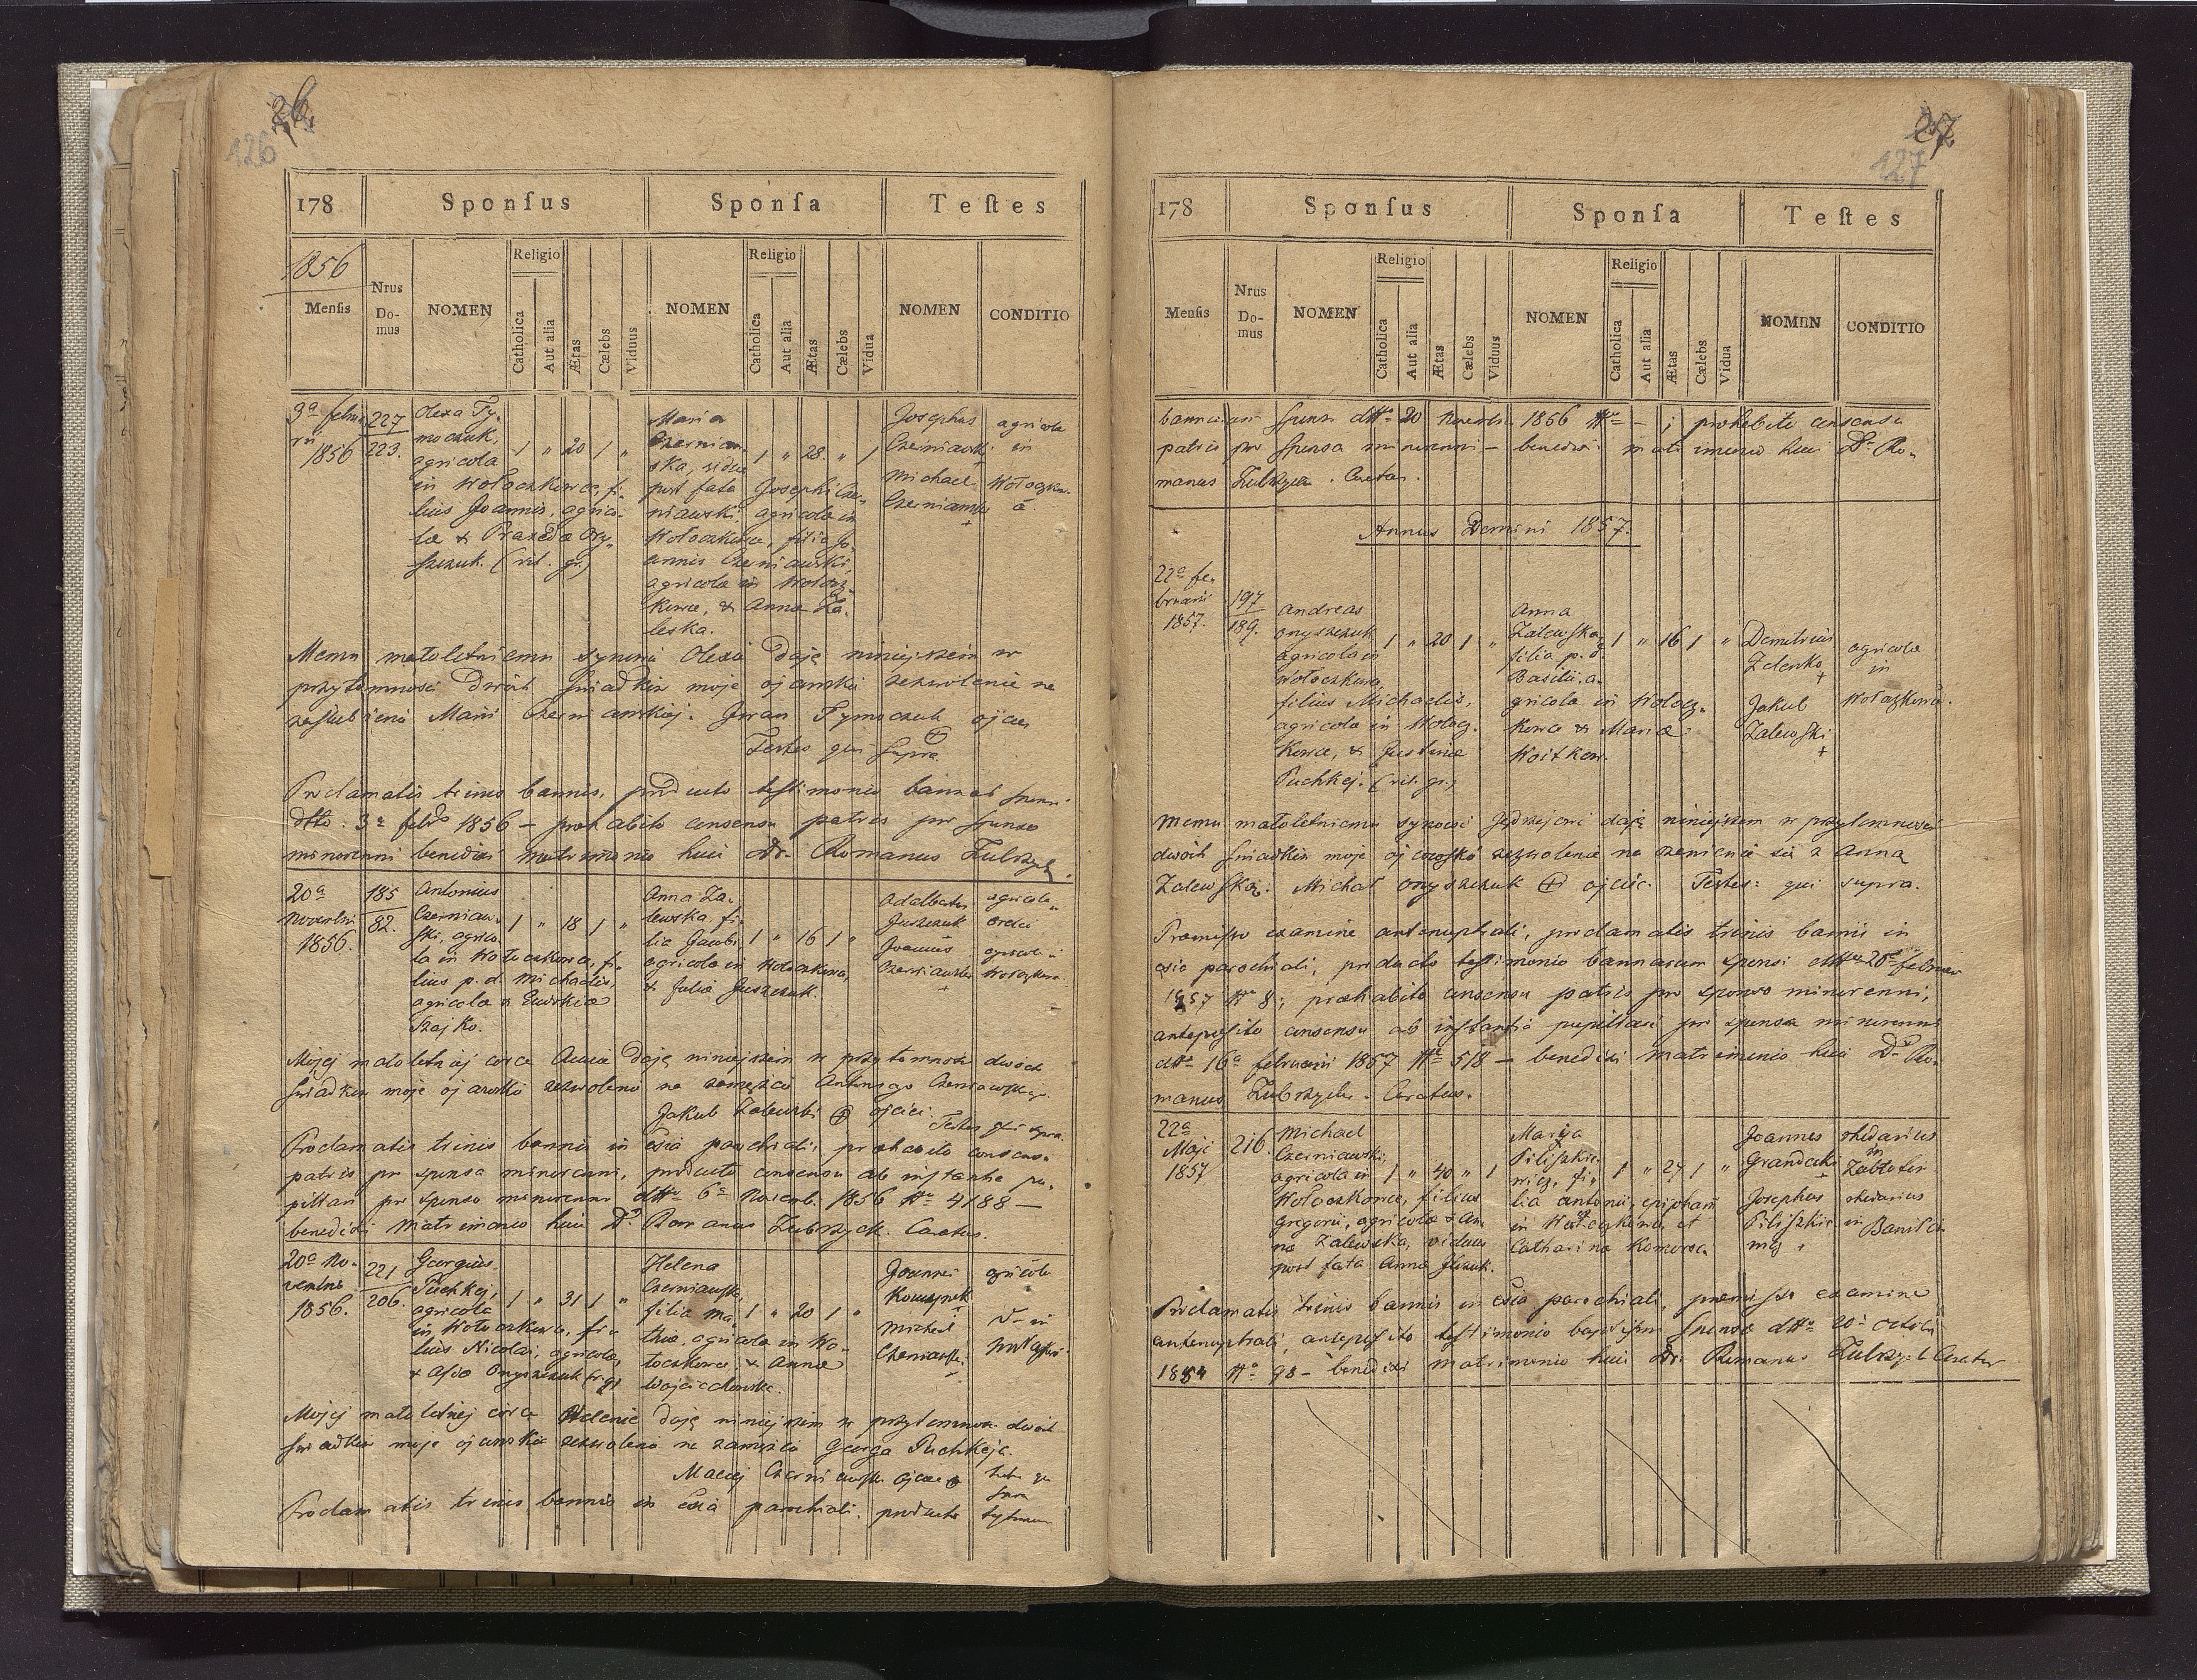 26
126
178 Sponſus Sponſa Teſtes
1856
Menſis Nrus Domus NOMEN Religio Catholica Aut alia Ætas Cælebs Viduus NOMEN Religio Catholica Aut alia Ætas Cælebs Vidua NOMEN CONDITIO
3a februarii 1856
227
223.
Olexa Ty-
moczuk,
agricola
in Wołoczkowce, fi-
lius Joannis, agrico-
læ &
szczuk. (rit. gr.)
1 " 20 1 "
Maria
Czerniaw-
ska, vidua
post fata Josephi Czer-
niawski, agricolæ in
Wołoczkowce, filia Jo-
annis Czerniawski,
agricolæ in Wołocz-
kowce, & Anna Za-
leska.
1 " 28. " 1
Josephus
Czerniawski
+
Michael
Czerniawski
+
agricolæ
in
Memu małoletniemu synowi Olexie daję niniejszem w
przytomności dwóch świadków moje ojcowskie zezwolenie na
zaślubienie Marii Czerniawskiej. Iwan Tymoczuk ojciec
Testes qui supra
Proclamatis trinis bannis, producto testimonio bannor sponsi
dtto. 3a febr 1856 – præhabito consensu patris pro sponso
minorenni benedixi matrimonio huic Dr. Romanus Zubrzycki
20a
Novembri
1856.
185
82.
Antonius
Czerniaw-
ski, agrico-
la in Wołoczkowce, fi-
lius p. d. Michaelis,
agricolæ & Eudokiæ
Szajko.
1 " 18 1 "
Anna Za-
lewska, fi-
lia Jacobi
agricolæ in Wołoczkowce,
& Julia Juszczuk.
1 " 16 1 "
Adalbertus
Juszczuk
Joannes
Czerniawski
+
agricola
agricola
Mojej małoletniej córce Annie daję niniejszem w przytomności dwóch
świadków moje ojcowskie zezwolenie na zamęście Antoniego Czerniawskiego.
Jakub Zalewski + ojciec. Testes qui supra.
Proclamatis trinis bannis in Ecsia parochiali, præhabito consensu
patris pro sponsa minorenni, producto consensu ab instantia pu-
pillari pro sponso minorenni dtto 6a Novemb. 1856 No 4188 –
benedixi matrimonio huic Dr. Romanus Zubrzycki. Curatus.
20a No-
vembris
1856.
221
206.
Georgius
Puchkej,
agricola
in Wołoczkowce, fi-
lius Nicolai, agricolæ,
&
1 " 31 1 "
Helena
Czerniawska,
filia Ma-
thiæ, agricolæ in Wo-
łoczkowce & Anna
Wojciechowska.
1 " 20 1 "
Joannes
Michael
Czerniawski
agricolæ
Mojej małoletniej córce Helenie daję niniejszem w przytomności dwóch
świadków moje ojcowskie zezwolenie na zamęście Georga Puchkeja.
Maciej Czerniawski ojciec
Proclamatis trinis bannis in Ecsia parochiali, producto testimonio
27
127
178 Sponſus Sponſa Teſtes
Menſis Nrus Domus NOMEN Religio Catholica Aut alia Ætas Cælebs Viduus NOMEN Religio Catholica Aut alia Ætas Cælebs Vidua NOMEN CONDITIO
sponsi dtto 20 Novembr. 1856 No – ; præhabito consensu
patris pro sponsa minorenni – benedixi matrimonio huic Dr. Ro-
manus Zubrzycki. Curatus.
Annus Domini 1857.
22a fe-
bruarii
1857.
197
189.
Andreas
Onyszczuk
agricola in
Wołoczkowce
filius Michaelis,
agricolæ in Wołocz-
kowce, & Justinæ
Puchkej. (rit. gr.)
1 " 20 1 "
Anna
Zalewska,
filia p. d.
Basilii, a-
gricolæ in Wołocz-
kowce & Mariæ
Woitkow.
1 " 16 1 "
Demitrius
Zelenko
+
Jakub
Zalewski
+
agricolæ
in
Wołoczkowce.
Memu małoletniemu synowi Jędrzejowi daję niniejszem w przytomności
dwóch świadków moje ojcowskie zezwolenie na żenienie się z Anną
Zalewską. Michał Onyszczuk + ojciec. Testes: qui supra.
Præmisso examine antenuptiali, proclamatis trinis bannis in
Ecsia parochiali, producto testimonio bannorum sponsi dtto 20a februar
1857 No 8; præhabito consensu patris pro sponso minorenni,
anteposito consensu ab instantia pupillari pro sponsa minorenni
dtto 16a februarii 1857 No 518 – benedixi matrimonio huic Dr. Ro-
manus Zubrzycki. Curatus.
22a
Maji
1857
216.
Michael
Czerniawski,
agricola in
Wołoczkowce, filius
Gregorii, agricolæ & An-
na Zalewska, viduus
post fata Anna
1 " 40 " 1
Marya
Piliszkie-
wicz, fi-
lia Antonii,
in Wołoczkowce, et
Catharina
1 " 27 1 "
Joannes
+
Josephus
Piliszkie-
wicz
in
in
Proclamatis trinis bannis in Ecsia parochiali, præmisso examine
antenuptiali, anteposito testimonio baptismi sponsæ dtto 20a octobr
No 98 – benedixi matrimonio huic Dr. Romanus Zubrzycki Curatus